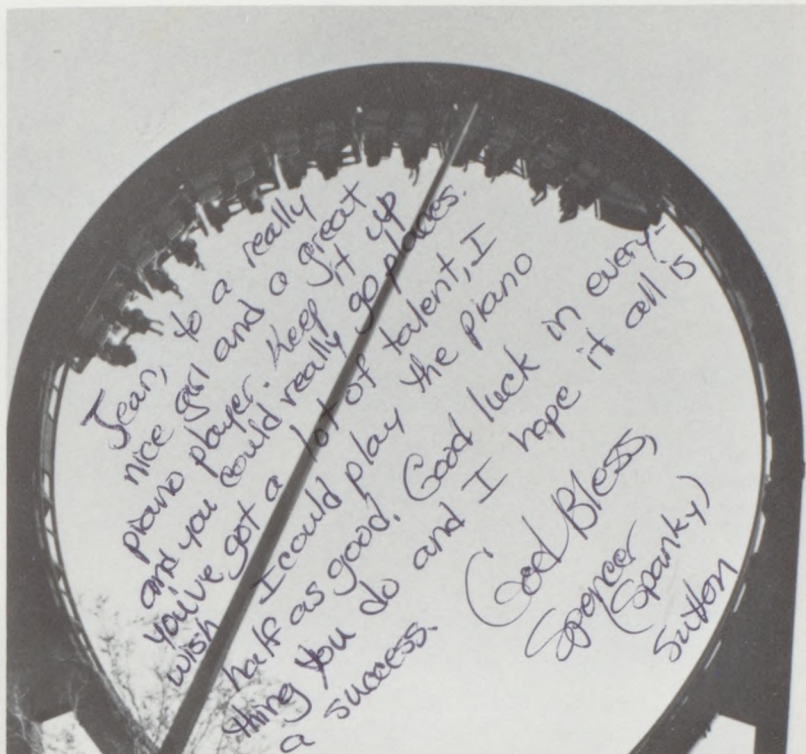 Jean, to a really
nice girl and a great
piano player. Keep it up
and you could really go places.
you've got a lot of talent, I
wish I could play the piano
half as good. Good luck in every-
thing you do and I hope it all is
a success.
God Bless,
Spencer
(Spanky)
Sutton